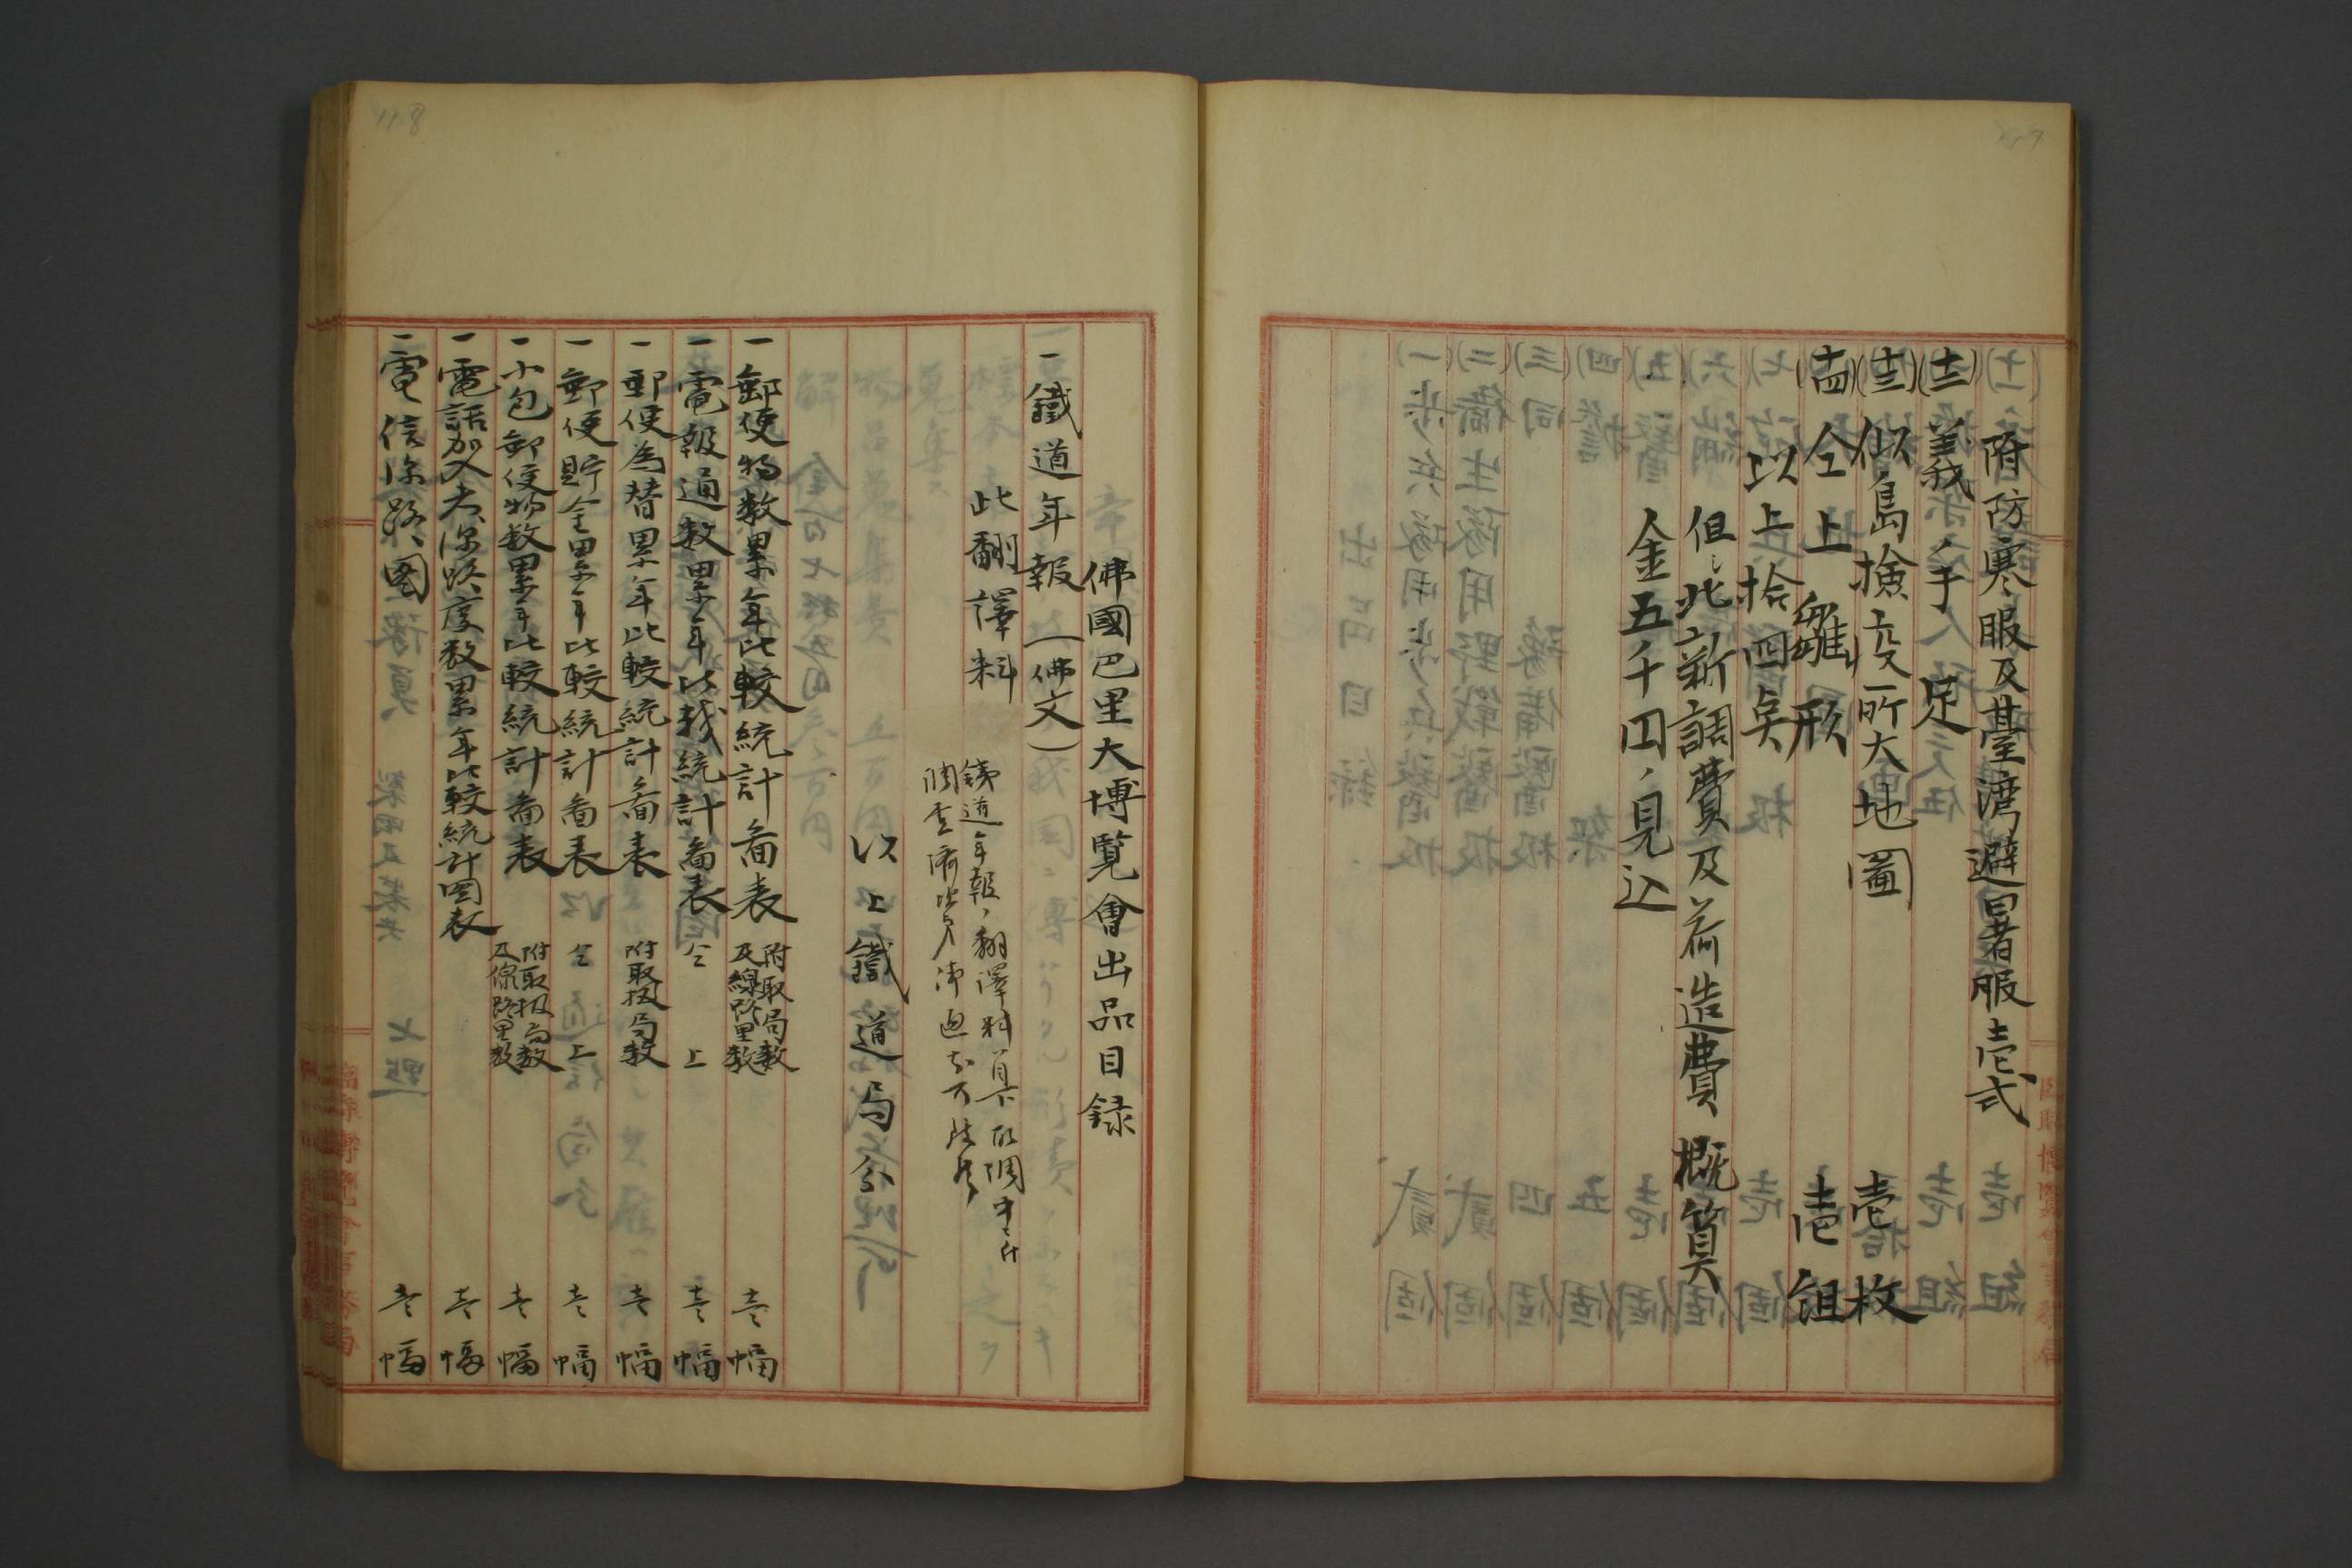 附防寒服及臺湾避暑服壱式
(十二) 義ノ手足 壱組
(十三) 似ノ島検疫所大地圖 壱枚
(十四) 仝上雛形 壱組
以上拾四点
但シ此新調費及荷造費概算
金五千円ノ見込
佛國巴里大博覧會出品目録
一鐵道年報(佛文)
此翻譯料
鉄道年報ノ翻譯料ハ目下取調中ニ付
以上鐵道局分
一郵便物数累年比較統計畵表 附取扱局数及線路里数 壱幅
一電報通数累年比較統計畵表 仝上 壱幅
一郵便為替累年比較統計畵表 附取扱局数 壱幅
一郵便貯金累年比較統計畵表 仝上 壱幅
一小包郵便物数累年比較統計畵表 附取扱局数及線路里数 壱幅
一電話加入者線路度数累年比較統計図表 壱幅
一電信線路図 壱幅
118